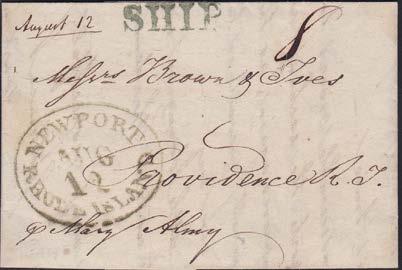 August 12
SHIP
8
Messrs Brown & Ives
NEWPORT
AUG
12
RHODE ISLAND
Providence R. I.
p Mary Almy